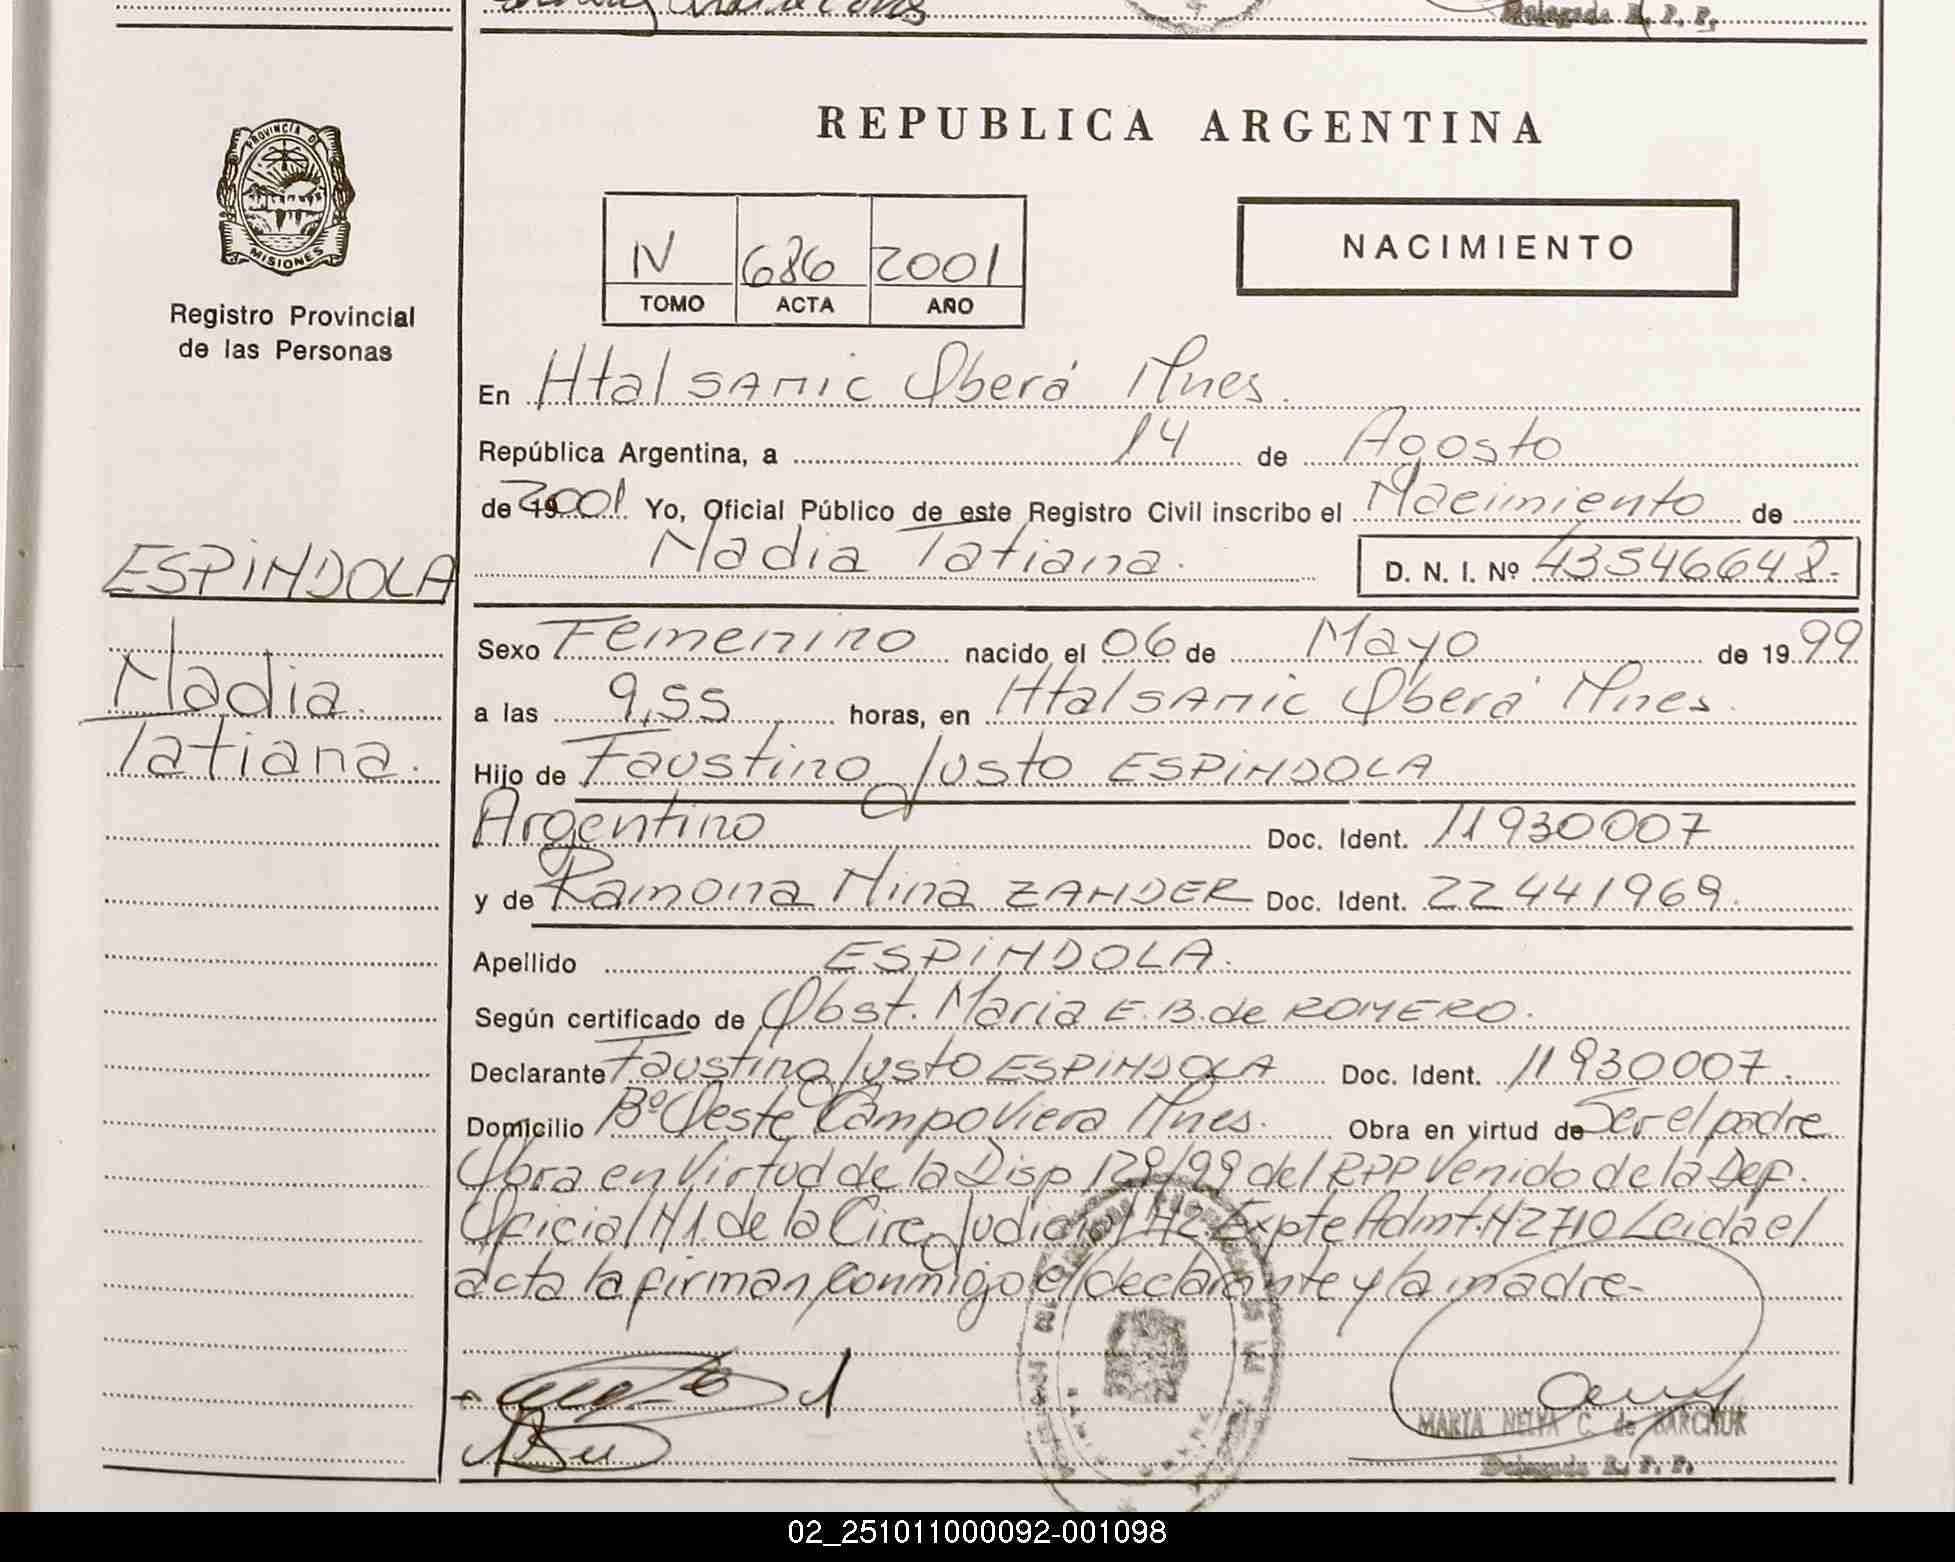 Delegada R. P. P.
REPUBLICA ARGENTINA
PROVINCIA DE
MISIONES
Registro Provincial
de las Personas
N 686 2001
TOMO ACTA AÑO
NACIMIENTO
En Htal SAMIC Oberá Mnes.
República Argentina, a 14 de Agosto
de 19 2001 Yo, Oficial Público de este Registro Civil inscribo el Nacimiento de
Nadia Tatiana. D. N. I. Nº 43546648.-
ESPINDOLA
Nadia
Tatiana.
Sexo Femenino nacido el 06 de Mayo de 1999
a las 9,55 horas, en Htal SAMIC Oberá Mnes.
Hijo de Faustino Justo ESPINDOLA
Argentino Doc. Ident. 11930007
y de Ramona Nina ZANDER Doc. Ident. 22441969.
Apellido ESPINDOLA.
Según certificado de Obst. Maria E. B. de ROMERO.
Declarante Faustino Justo ESPINDOLA Doc. Ident. 11930007.
Domicilio Bº Oeste Campo Viera Mnes. Obra en virtud de Ser el padre
Obra en Virtud de la Disp 128/99 del RPP Venido de la Def.
Oficial N1. de la Circ. Judicial N2. Expte Admt. N2710 Leida el
acta la firman conmigo el declarante y la madre-
MARIA NELVA C. de BARCHUK
Delegada R. P. P.
02_251011000092-001098